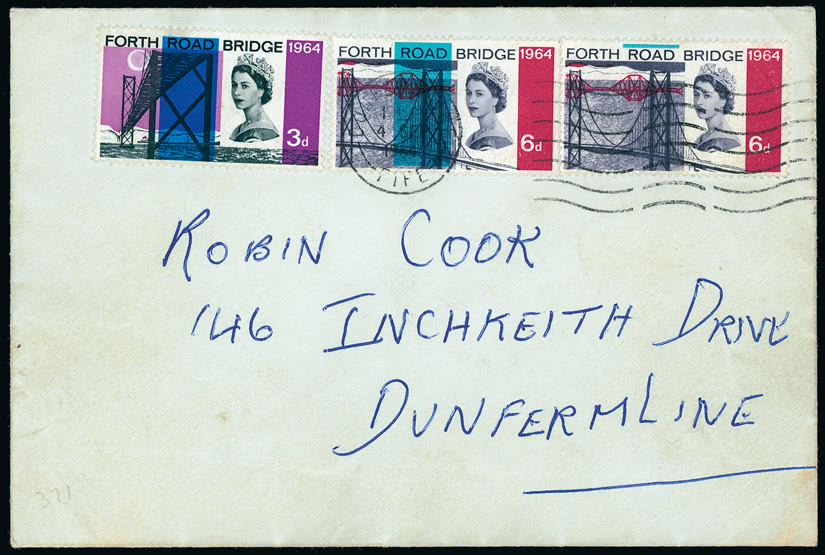 FORTH ROAD BRIDGE 1964
3d
FORTH ROAD BRIDGE 1964
6d
FORTH ROAD BRIDGE 1964
6d
FIFE
ROBIN COOK
146 INCHKEITH DRIVE
DUNFERMLINE
371